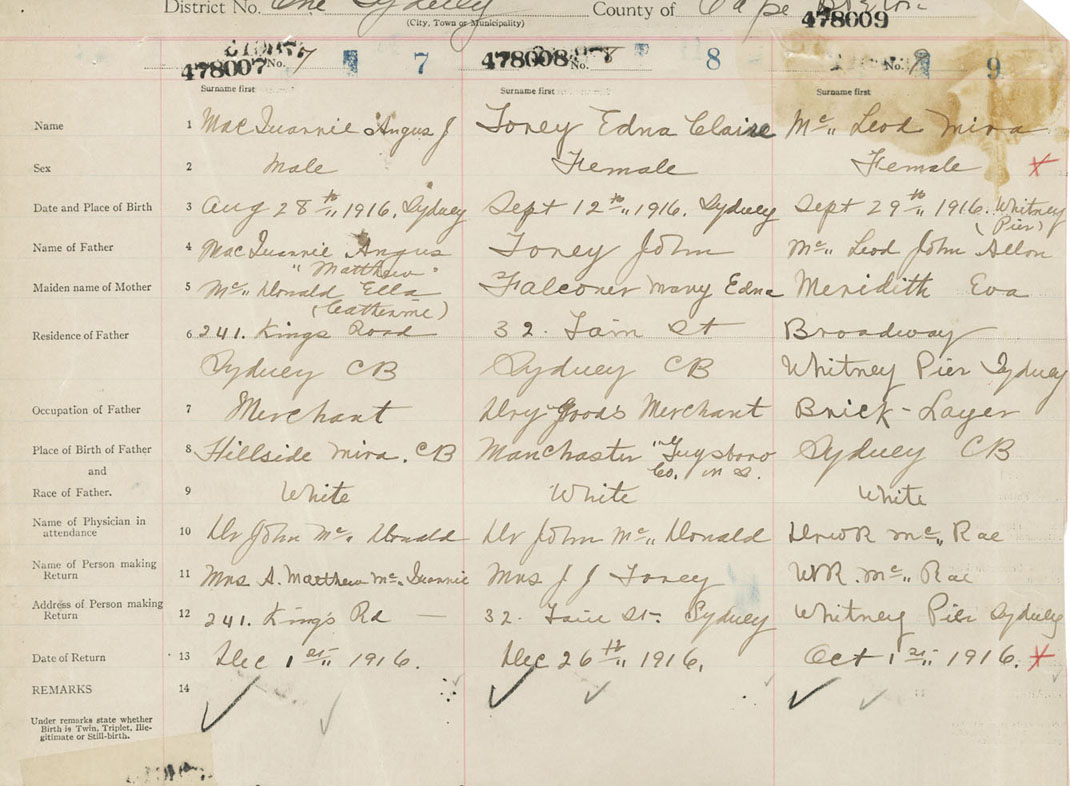 District No. One Sydney County of Cape Breton
(City, Town or Municipality)
478007 No. 7 478008 No. 8 478009 No. 9
Surname first Surname first Surname first
Name 1 Mac Quannie Angus J Toney Edna Claire Mc Leod Mira
Sex 2 Male Female Female
Date and Place of Birth 3 Aug 28th 1916. Sydney Sept 12th 1916. Sydney Sept 29th 1916. Whitney
(Pier)
Name of Father 4 Mac Quannie Angus Toney John Mc Leod John Allon
"Matthew"
Maiden name of Mother 5 Mc Donald Ella Falconer Mary Edna Meridith Eva
(Catherine)
Residence of Father 6 241. Kings Road 32. St Broadway
Sydney CB Sydney CB Whitney Pier Sydney
Occupation of Father 7 Merchant Dry Goods Merchant Brick-Layer
Place of Birth of Father 8 Hillside Mira. CB Manchaster "Guysboro Sydney CB
and Co. N S.
Race of Father. 9 White White White
Name of Physician in
attendance 10 Dr John Mc Donald Dr John Mc Donald Dr W R Mc Rae
Name of Person making
Return 11 Mrs A. Matthew Mc Quannie Mrs J J Toney WR. Mc Rae
Address of Person making
Return 12 241. Kings Rd — 32. St. Sydney Whitney Pier Sydney
Date of Return 13 Dec 1st 1916. Dec 26th 1916. Oct 1st 1916.
REMARKS 14
Under remarks state whether
Birth is Twin, Triplet, Ille-
gitimate or Still-birth.